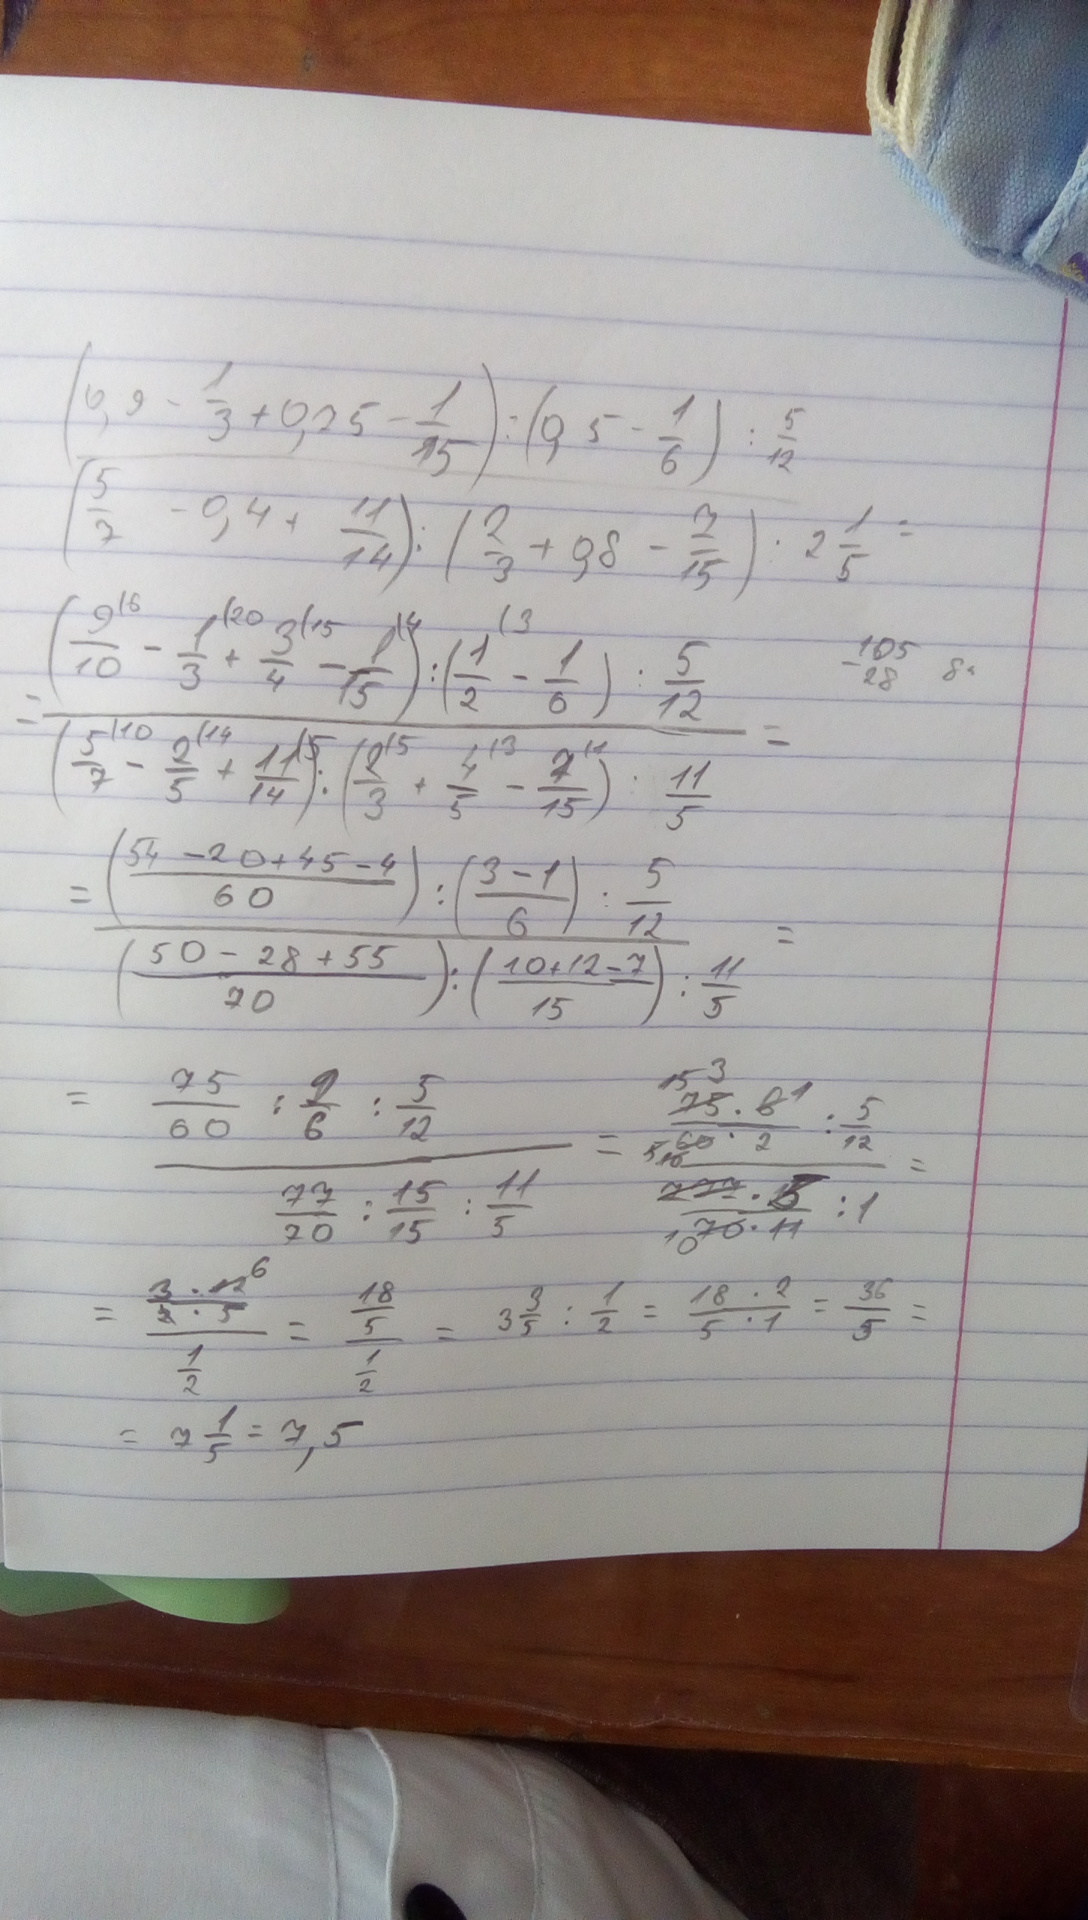 (0,9 - 1/3 + 0,75 - 1/15) : (0,5 - 1/6) : 5/12
(5/7 - 0,4 + 11/14) : (2/3 + 0,8 - 7/15) : 2 1/5 =
= (9/10 (6 - 1/3 (20 + 3/4 (15 - 1/15 (4) : (1/2 (3 - 1/6) : 5/12
(5/7 (10 - 2/5 (14 + 11/14 (5) : (2/3 (5 + 4/5 (3 - 7/15 (1) : 11/5 =
-105
28
= ((54 - 20 + 45 - 4)/60) : ((3 - 1)/6) : 5/12
((50 - 28 + 55)/70) : ((10 + 12 - 7)/15) : 11/5 =
= 75/60 : 2/6 : 5/12
77/70 : 15/15 : 11/5
= 75 · 6/60 · 2 : 5/12
: 1 =
= 3 · 12/2 · 5 / 1/2 = 18/5 / 1/2 = 3 3/5 : 1/2 = 18 · 2/5 · 1 = 36/5 =
= 7 1/5 = 7,5